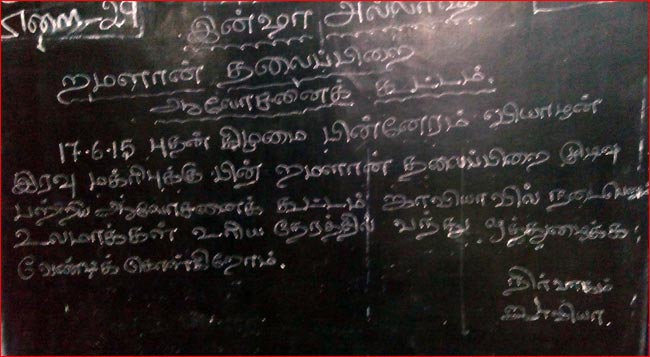 பிறை-29
இன்ஷா அல்லாஹ்
றமளான் தலைப்பிறை
ஆலோசனைக் கூட்டம்.
17.6.15 புதன் கிழமை பின்னேரம் வியாழன்
இரவு மக்ரிபுக்கு பின் றமளான் தலைப்பிறை முடிவு
பற்றிய ஆலோசனைக் கூட்டம் ஸாவியாவில் நடைபெறும்
உலமாக்கள் உரிய நேரத்தில் வந்து ஒத்துழைக்க
வேண்டிக் கொள்கிறோம்.
நிர்வாகம்
ஸாவியா.